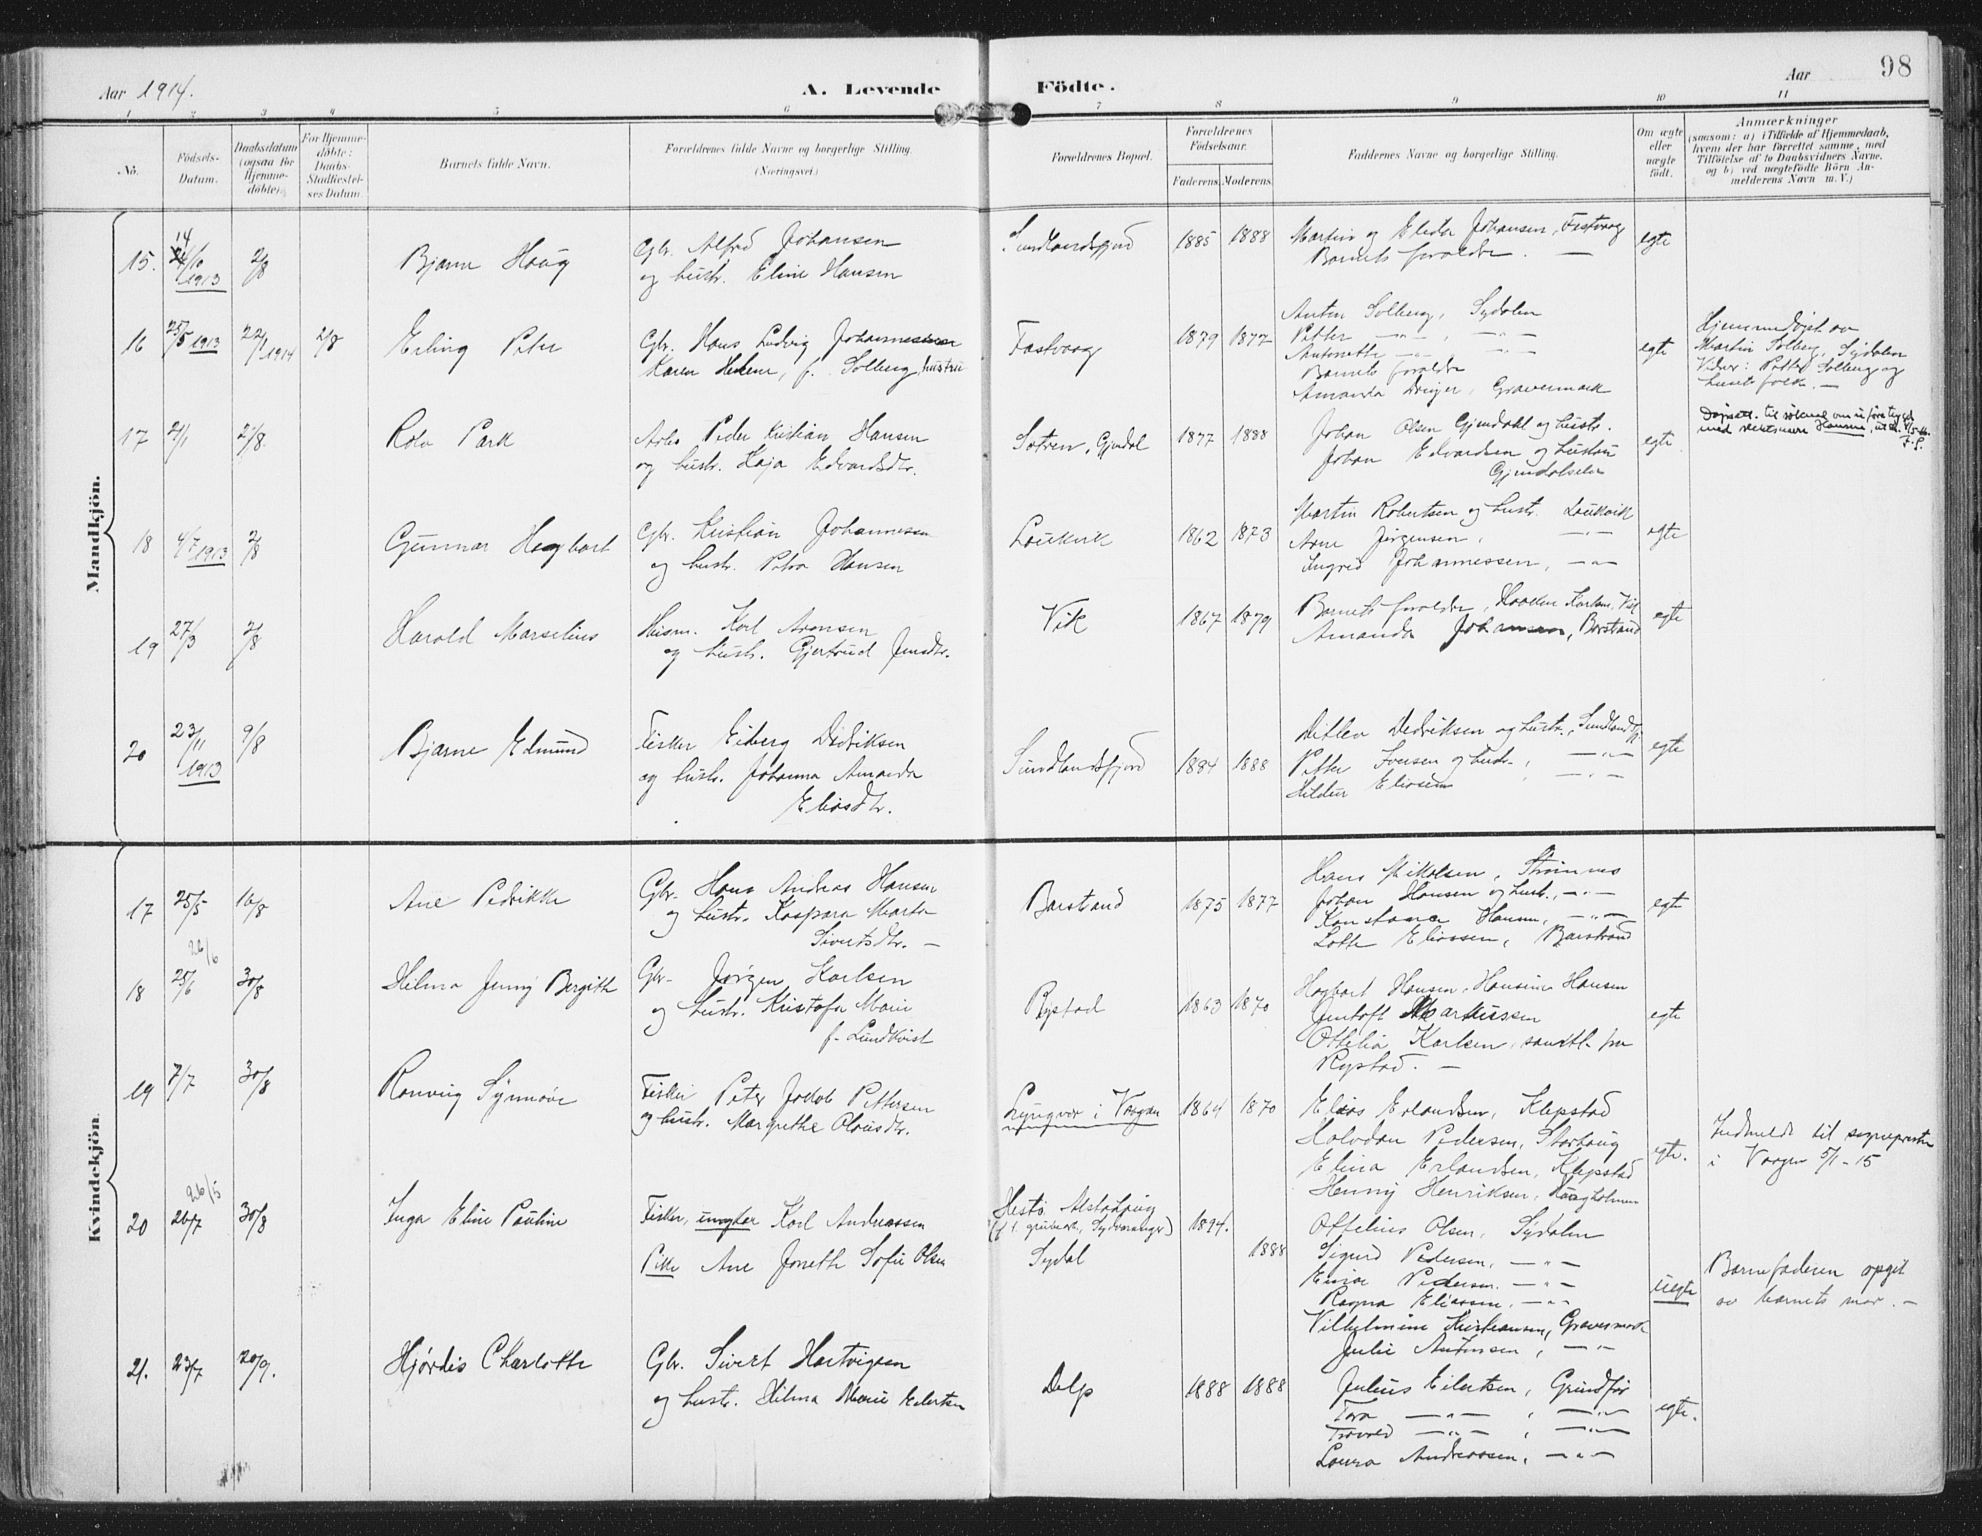 98
Aar 1914.
A. Levende Födte.
Aar
1 2 3 4 5 6 7 8 9 10 11
No.
Födsels-
Datum.
Daabsdatum
(ogsaa for
Hjemme-
döbte)
For Hjemme-
döbte:
Daabs-
Stadfæstel-
ses Datum.
Barnets fulde Navn.
Forældrenes fulde Navne og borgerlige Stilling.
(Næringsvei.)
Forældrenes Bopæl.
Forældrenes
Födselsaar.
Faderens. Moderens.
Faddernes Navne og borgerlige Stilling.
Om ægte
eller
uægte
födt.
Anmærkninger
(saasom: a) i Tilfælde af Hjemmedaab,
hvem der har forrettet samme, med
Tilföielse af to Daabsvidners Navne,
og b) ved uægtefödte Börn An-
melderens Navn m. V.)
Mandkjön.
15. 14/10 1913 2/8 Bjarne Haug
Gbr. Alfred Johansen
og hustr. Eline Hansen
Sundlandsfjord 1885 1888
Martin og Johansen, Fastvaag
Barnets foreldre. —
egte
16 25/5 1913 22/1 1914 2/8 Erling Peter
Gbr. Hans Ludvig Johannessen
Karen Helene, f. Solberg, hustru
Fastvaag 1879 1877
Anton Solberg, Sydalen
Petter —"— , —"—
Antonette —"— —"—
Barnets foreldre
Amanda Dreyer, Gravermark
egte
Hjemmedøpt av
Martin Solberg, Sydalen
Vidner: Petter Solberg og
hustr
17 2/1 2/8. Rolv Park
Arb. Peder Kristian Hansen
og hustr. Kaja Edvardsdtr.
Sotren, Gjendal 1877 1888
Johan Olsen Gjendahl og hustr.
Johan Edvardsen og hustru
Gjendalselv
egte
med slektsnavn
18 4/7 1913 2/8 Gunnar Hagbart
Gbr. Kristian Johannesen
og hustr. Petra Hansen
Laukvik 1862 1873
Martin Robertsen og hustr. Laukvik
Arne Jørgensen, —"—
Ingrid Johannessen, —"—
egte
19 27/3 2/8 Harald Marselius
Husm. Karl Aronsen
og hustr. Gjertrud Jensdtr.
Vik 1867 1879
Barnets foreldre, Haakon Karlsen, Vik
Amanda Johansen, Barstrand
egte
20 23/11 1913 9/8 Bjarne Edmund
Fisker Eiberg Didriksen
og hustr. Johanna Amanda
Eliasdtr.
Sundlandsfjord 1884 1888
Ditlev Dedriksen og hustr., Sundlandsfj.
Petter Iversen og hustr., —"—
Hildur Eliassen —"—
egte
Kvindekjön
17 25/5 16/8 Ane Pedrikke
Gbr. Hans Andreas Hansen
og hustr. Kaspara Marta
Sivertsdtr. —
Barstrand 1875 1877
Hans Mikalsen, Strømnes
Johan Hansen og hustr., —"—
Konstanse Hansen, —"—
Lotte Eliassen, Barstrand
egte
26/6
18 25/6 30/8 Hilma Jenny Bergitte
Gbr. Jørgen Karlsen
og hustr. Kristofa Marie
f. Lundkvist
Rystad 1863 1870
Hagbart Hansen, Hansine Hansen
Jentoft Markussen
Othelia Karlsen, samtl. fra
Rystad. —
egte
19 7/7 30/8 Ranveig Synnøve
Fisker Peter Jakob Pettersen
og hustr. Margrethe Olausdtr.
Lyngvær i Vaagan 1864 1870
Elias Erlandsen, Klepstad
Halvdan Pedersen, Storhaug
Elina Erlandsen, Klepstad
Henny Henriksen,
egte.
Indmeldt til sogneprsten
i Vaagan 5/1-15
26/5
20 26/7 30/8 Inga Eline Pauline
Fisker, ungkar Karl Andreassen
Pike Ane Jonette Sofie Olsen
Hestø Alstahaug
(f.t. grubearb, Sydvaranger)
Sydal
1894. 1888
Ottelius Olsen, Sydalen
Sigurd Pedersen, —"—
Emine Pedersen. —"—
Ragna Eliassen, —"—
Vilhelmine Kristiansen, Gravermark
Julie Antonsen, —"—
uegte
Barnefaderen opgit
av barnets mor. —
21. 23/7 20/9. Hjørdis Charlotte
Gbr. Sivert Hartvigsen
og hustr. Hilma Marie Eilertsen
Delp 1888 1888
Julius Eilertsen, Grundfør
Tora —"— , —"—
—"— , —"—
Laura Andreassen, —"—
egte.